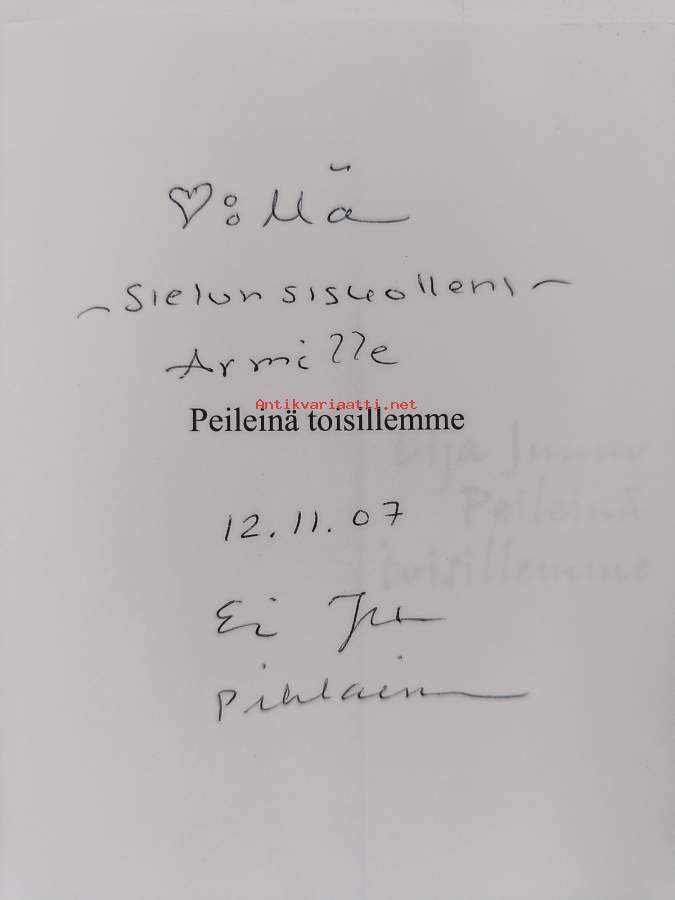 ♡:llä
~ Sielunsiskolleni ~
Armille
Antikvariaatti.net
Peileinä toisillemme
12.11.07
Peileinä
toisillemme